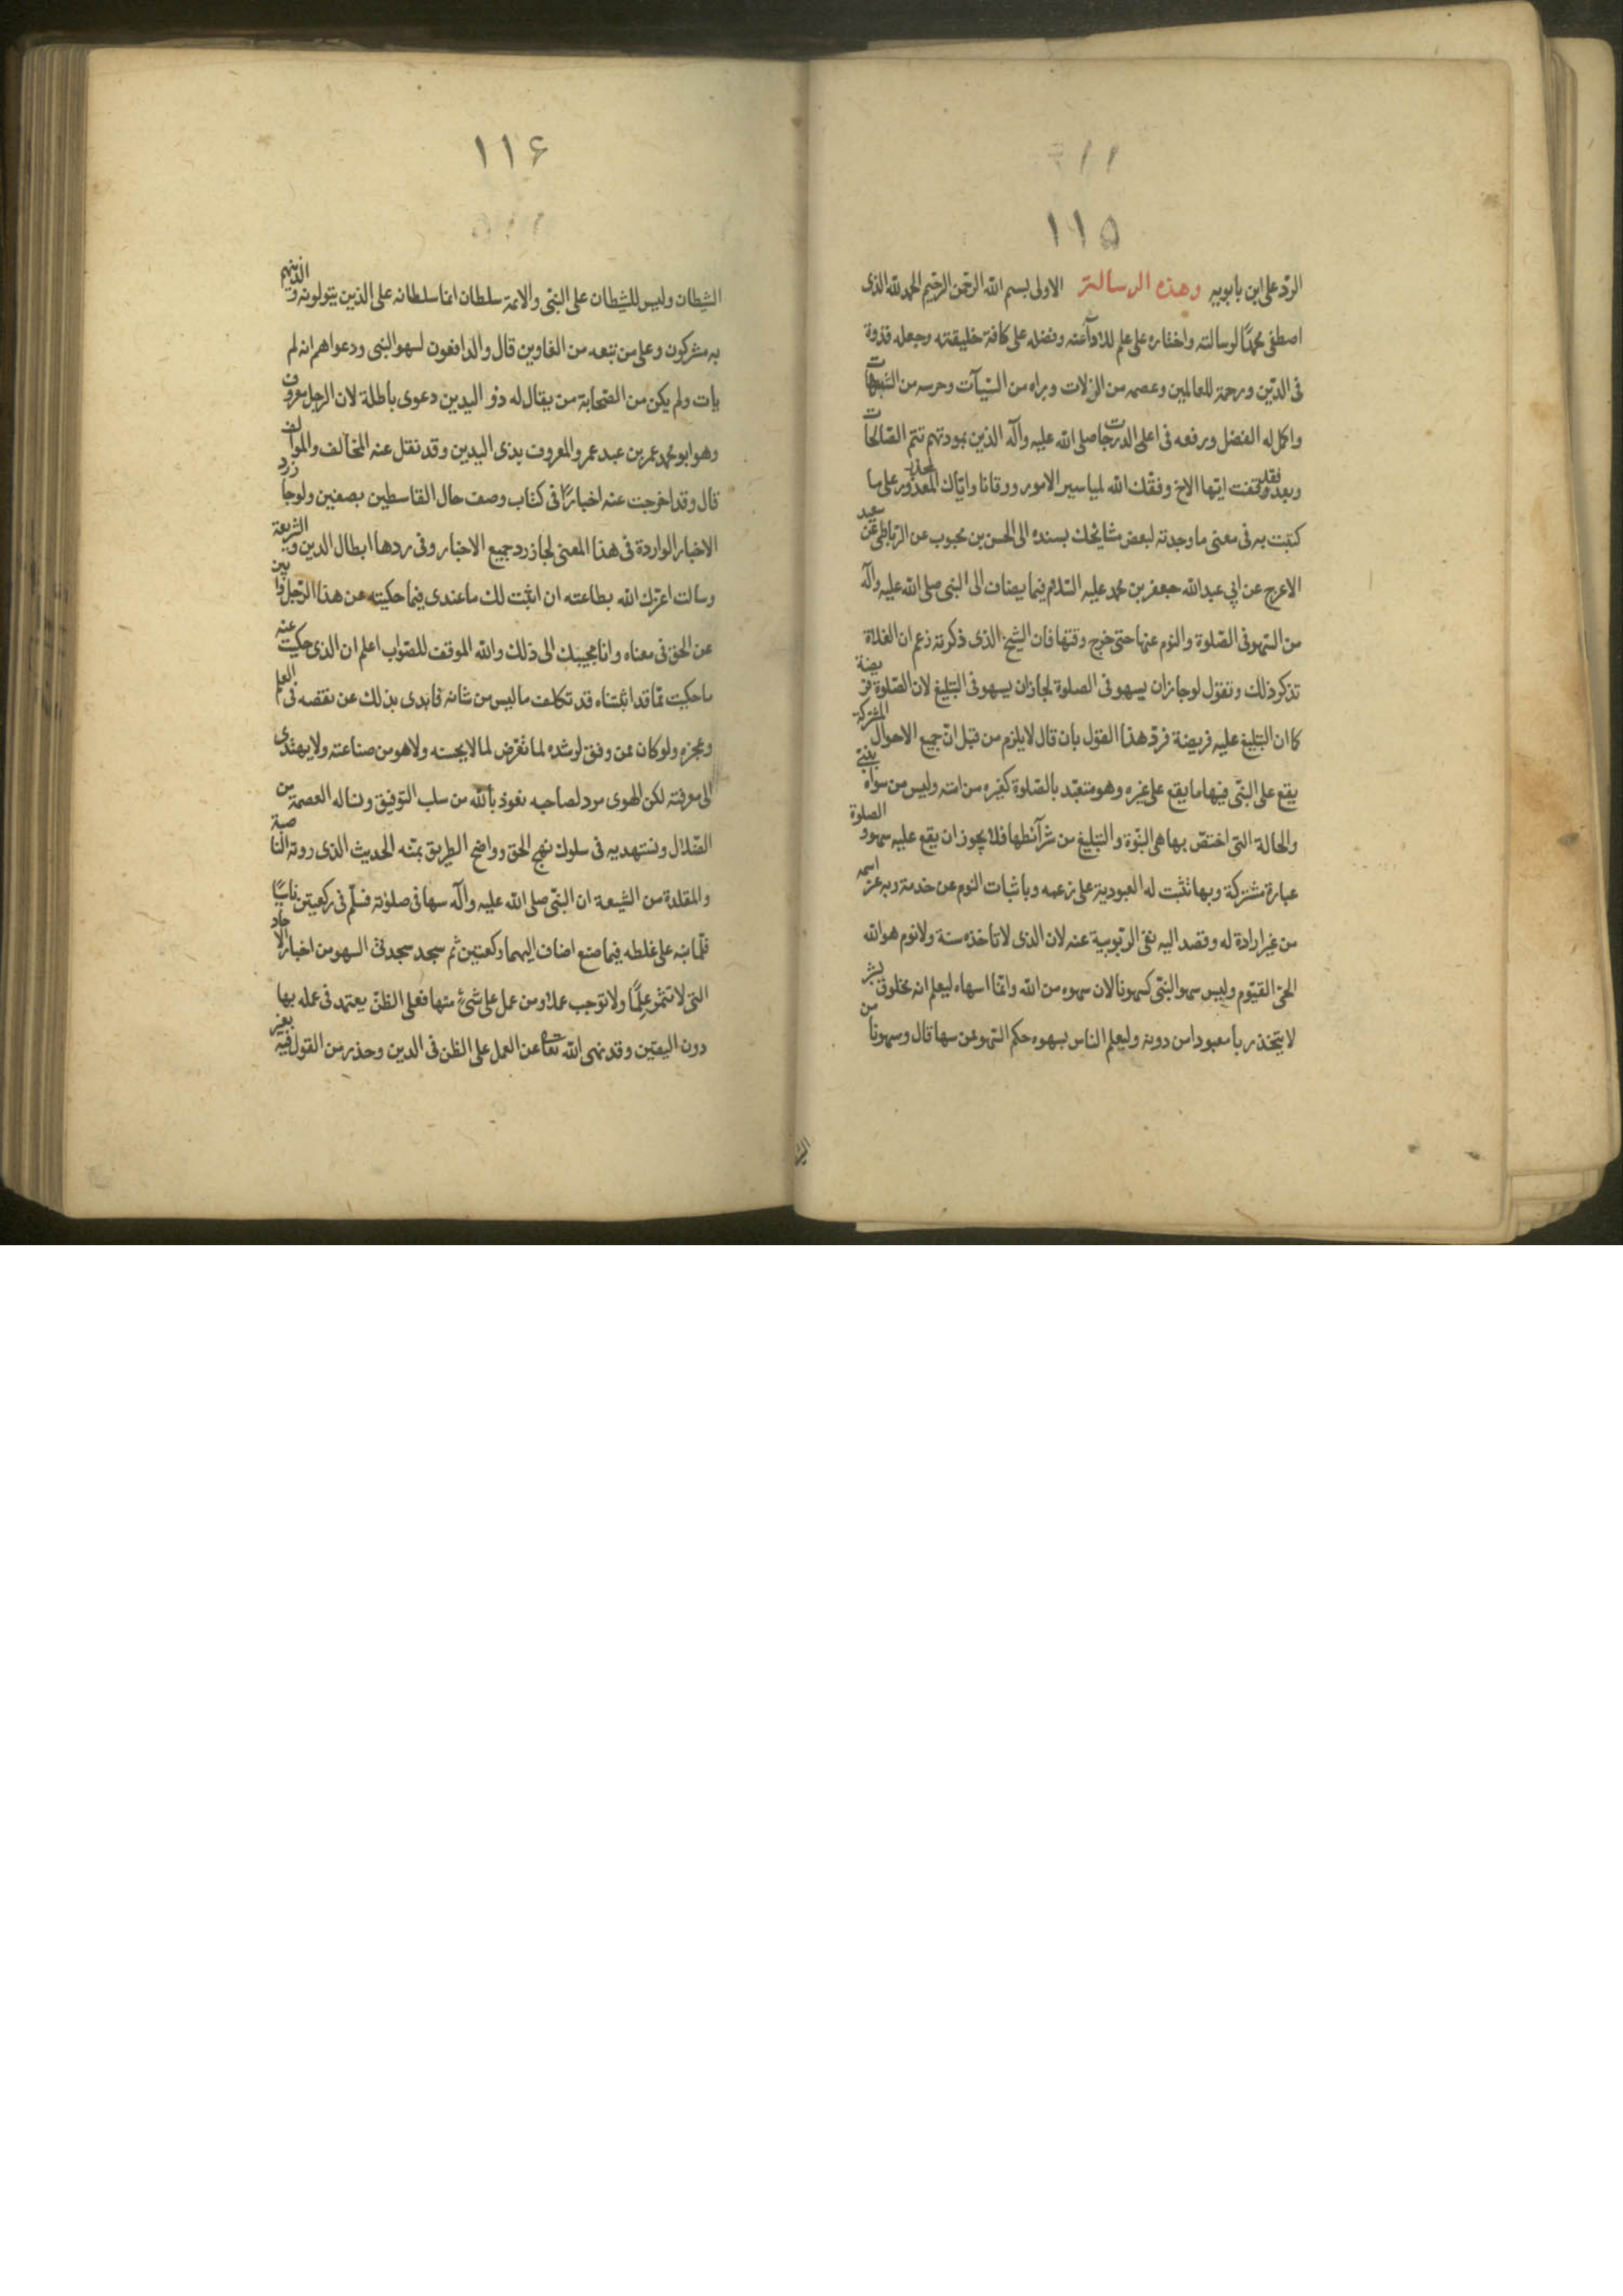 ١١۵
الرد على ابن بابويه وهذه الرسالة الاولى بسم الله الرحمن الرحيم الحمد لله الذى
اصطفى محمدا لرسالته واختاره على علم للادآء عنه وفضله على كافة خليقته وجعله قدوة
فى الدين ورحمة للعالمين وعصمه من الزلات وبراه من السيآت وحرسه من الشبهات
واكمل له الفضل ورفعه فى اعلى الدرجات صلى الله عليه وآله الذين بمودتهم تتم الصالحات
وبعد فقد وقفت ايها الاخ وفقك الله لمياسير الامور ووقانا واياك المعذور على ما
كتبت به فى معنى ما وجدته لبعض مشايخك بسنده الى الحسن بن محبوب عن الرباطى عن سعيد
الاعرج عن ابي عبد الله جعفر بن محمد عليه السلام فيما يضاف الى النبى صلى الله عليه وآله
من السهو فى الصلوة والنوم عنها حتى خرج وقتها فان الشيخ الذى ذكرته زعم ان الغلاة
تذكر ذلك وتقول لو جاز ان يسهو فى الصلوة لجاز ان يسهو فى التبليغ لان الصلوة فريضة
كما ان التبليغ عليه فريضة فرد هذا القول بان قال لا يلزم من قبل ان جميع الاحوال المشتركة
يقع على النبى فيها ما يقع على غيره وهو متعبد بالصلوة كغيره من امته وليس من سواه بنبى
والحالة التى اختص بها هى النبوة والتبليغ من شرآئطها فلا يجوز ان يقع عليه سهو والصلوة
عبارة مشتركة وبها تثبت له العبودية على زعمه وباثبات النوم عن خدمة ربه عز اسمه
من غير ارادة له وقصد اليه نفى الربوبية عنه لان الذى لا تاخذه سنة ولا نوم هو الله
الحى القيوم وليس سهو النبى كسهونا لان سهوه من الله وانما اسهاه ليعلم انه مخلوق بشر
لا يتخذ ربا معبودا من دونه وليعلم الناس بسهوه حكم السهو عمن سها قال وسهونا من
١١۶
الشيطان وليس للشيطان على النبى والائمة سلطان انما سلطانه على الذين يتولونه والذينهم
به مشركون وعلى من تبعه من الغاوين قال والدافعون لسهو النبى ودعواهم انه لم
يات ولم يكن من الصحابة من يقال له ذو اليدين دعوى باطلة لان الرجل معروف
وهو ابو محمد عمر بن عبد عمر والمعروف بذى اليدين وقد نقل عنه المخالف والموالف
قال وقد اخرجت عنه اخبارا فى كتاب وصف حال القاسطين بصفين ولو جاز رد
الاخبار الواردة فى هذا المعنى لجاز رد جميع الاخبار وفى ردها ابطال الدين والشريعة
وسالت اعزك الله بطاعته ان اثبت لك ما عندى فيما حكيته عن هذا الرجل وابين
عن الحق فى معناه وانا مجيبك الى ذلك والله الموفق للصواب اعلم ان الذى حكيت عنه
ما حكيت مما قد اثبتناه قد تكلف ما ليس من شانه فابدى بذلك عن نقصه فى العلم
وعجزه ولو كان ممن وفق لرشده لما تعرض لما لا يحسنه ولا هو من صناعته ولا يهتدى
الى معرفته لكن الهوى مرد لصاحبه نعوذ بالله من سلب التوفيق ونساله العصمة من
الضلال ونستهديه فى سلوك نهج الحق وواضح الطريق بمنه الحديث الذى روته الناصبة
والمقلدة من الشيعة ان النبى صلى الله عليه وآله سها فى صلوته فسلم فى ركعتين ناسيا
فلما نبه على غلطه فيما صنع اضاف اليهما ركعتين ثم سجد سجدتى السهو من اخبار الاحاد
التى لا تثمر علما ولا توجب عملا ومن عمل على شىء منها فعلى الظن يعتمد فى عمله بها
دون اليقين وقد نهى الله تعالى عن العمل على الظن فى الدين وحذر من القول فيه بغير